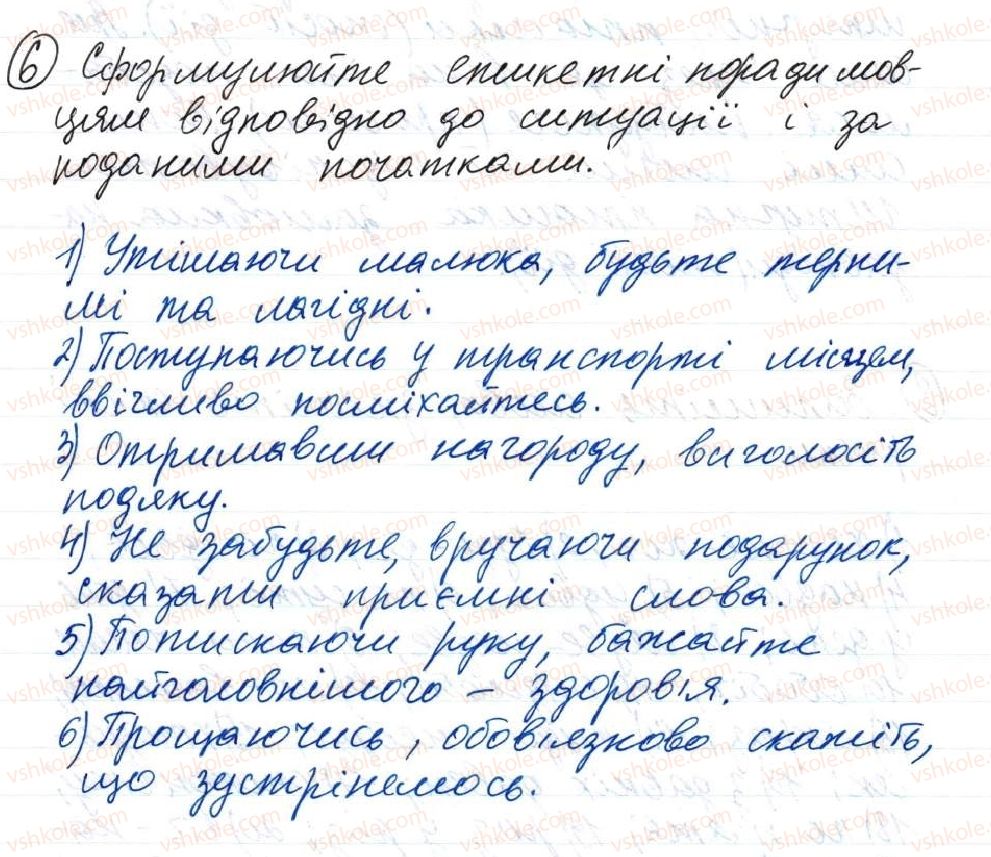 6 Сформулюйте етикетні поради мов-
цям відповідно до ситуації і за
поданими початками.
1) Утішаючи малюка, будьте терпи-
мі та лагідні.
2) Поступаючись у транспорті місцем,
ввічливо посміхайтесь.
3) Отримавши нагороду, виголосіть
подяку.
4) Не забудьте, вручаючи подарунок,
сказати приємні слова.
5) Потискаючи руку, бажайте
найголовнішого – здоров'я.
6) Прощаючись, обов'язково скажіть,
що зустрінемось.
vshkole.com